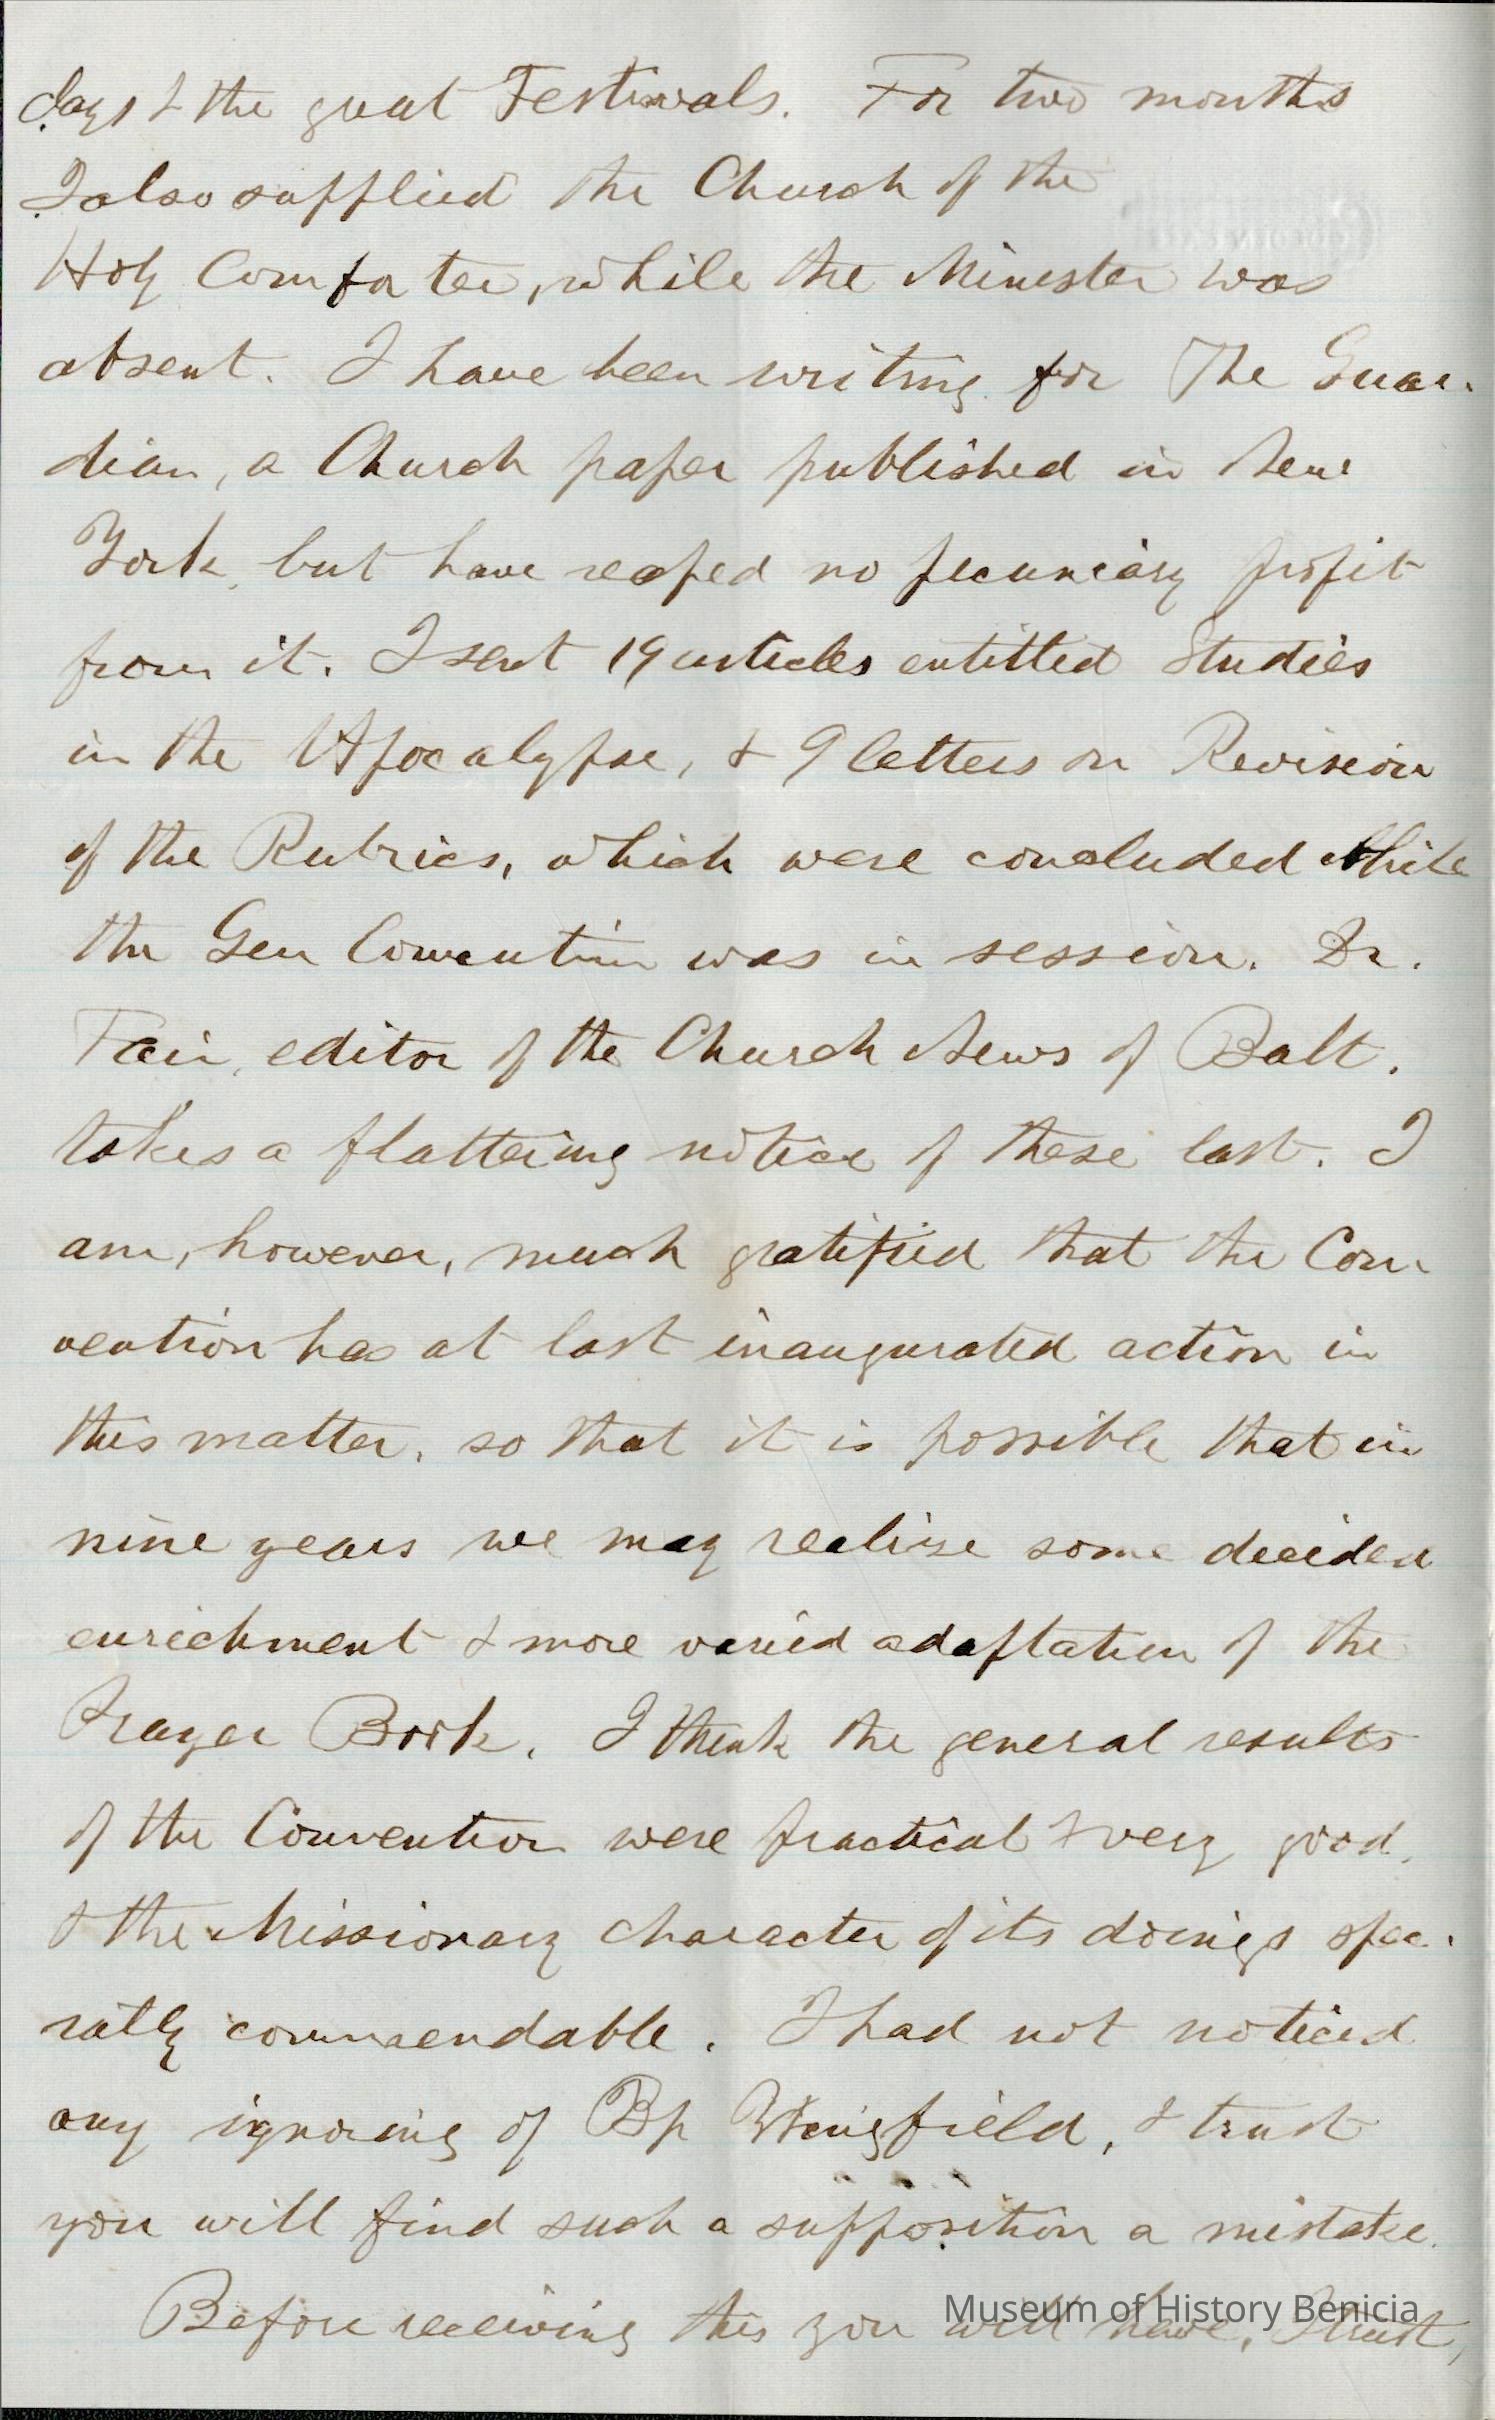 days & the great Festivals. For two months
I also supplied the Church of the
Holy Comforter, while the Minister was
absent. I have been writing for The Guar-
dian, a Church paper published in New
York, but have reaped no pecuniary profit
from it. I sent 19 articles entitled Studies
in the Apocalypse, & 9 letters on Revision
of the Rubrics, which were concluded while
the Gen Convention was in session. Dr.
Fair, editor of the Church News of Balt.
takes a flattering notice of these last. I
am, however, much gratified that the Con-
vention has at last inaugurated action in
this matter, so that it is possible that in
nine years we may realize some decided
enrichment & more varied adaptation of the
Prayer Book. I think the general results
of the Convention were practical & very good,
& the Missionary character of its doings spec-
ially commendable. I had not noticed
any ignoring of Bp Wingfield, & trust
you will find such a supposition a mistake.
Before receiving this you will have, I trust,
Museum of History Benicia